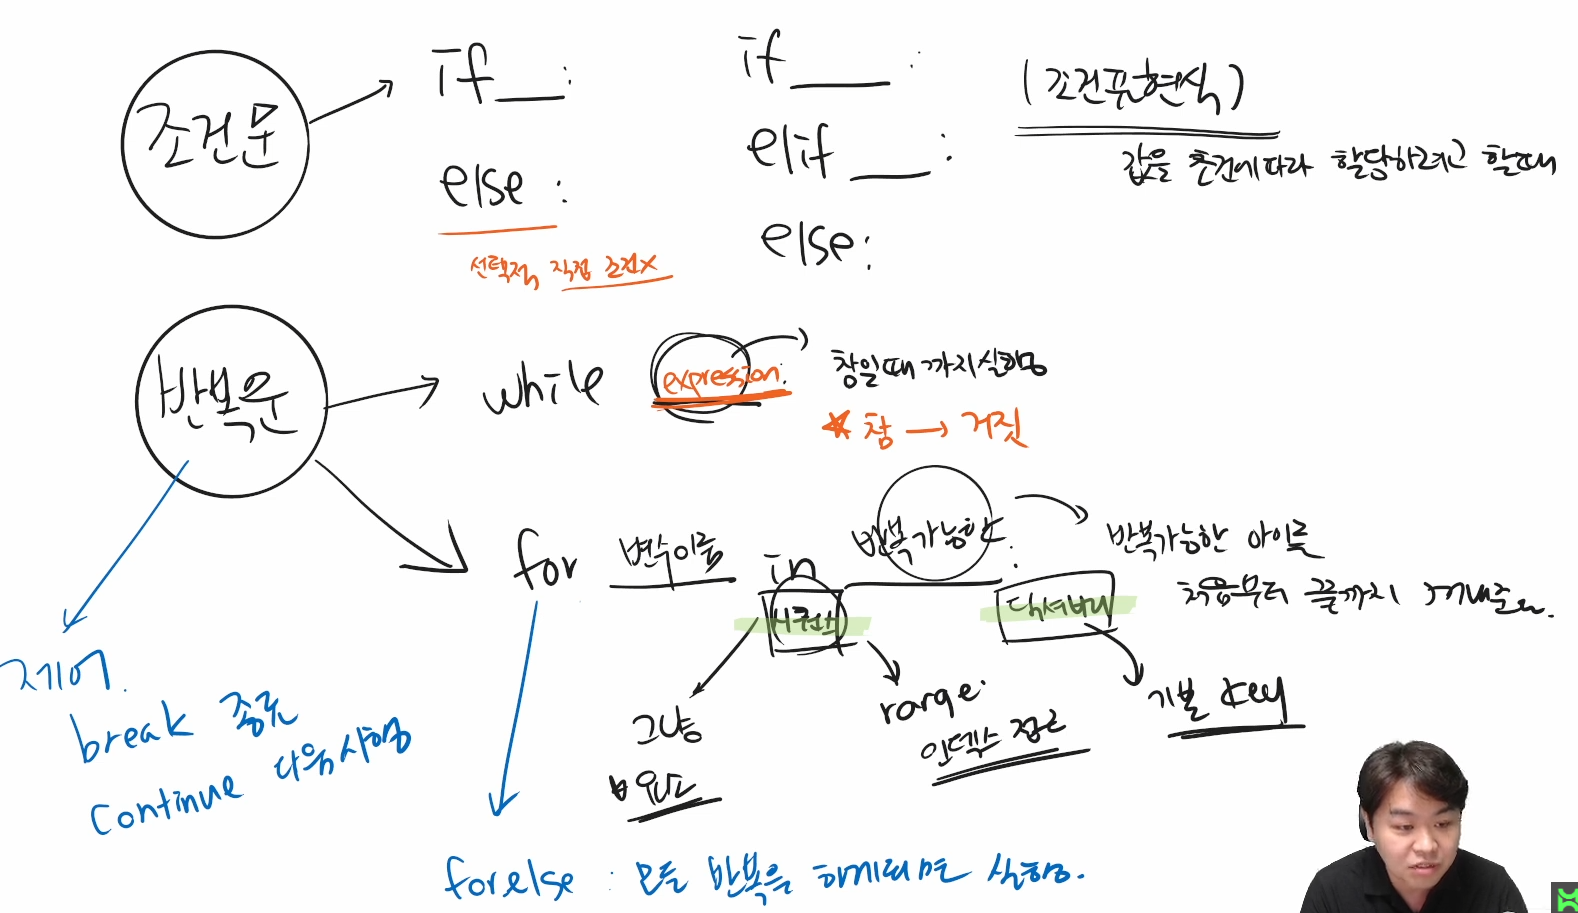 조건문
if __:
else :
선택적, 직접 조건X
if ____ :
elif ___ :
else:
(조건표현식)
값을 조건에따라 할당하려고 할때
반복문
while expression:
참일때 까지실행
★ 참 → 거짓
for 변수이름 in 반복가능한 :
반복가능한 아이를
처음부터 끝까지 꺼내준다.
시퀀스
딕셔너리
그냥
range:
인덱스 접근
기본 key
제어.
break 종료
continue 다음시행
for else : 모든 반복을 하게되면 실행.